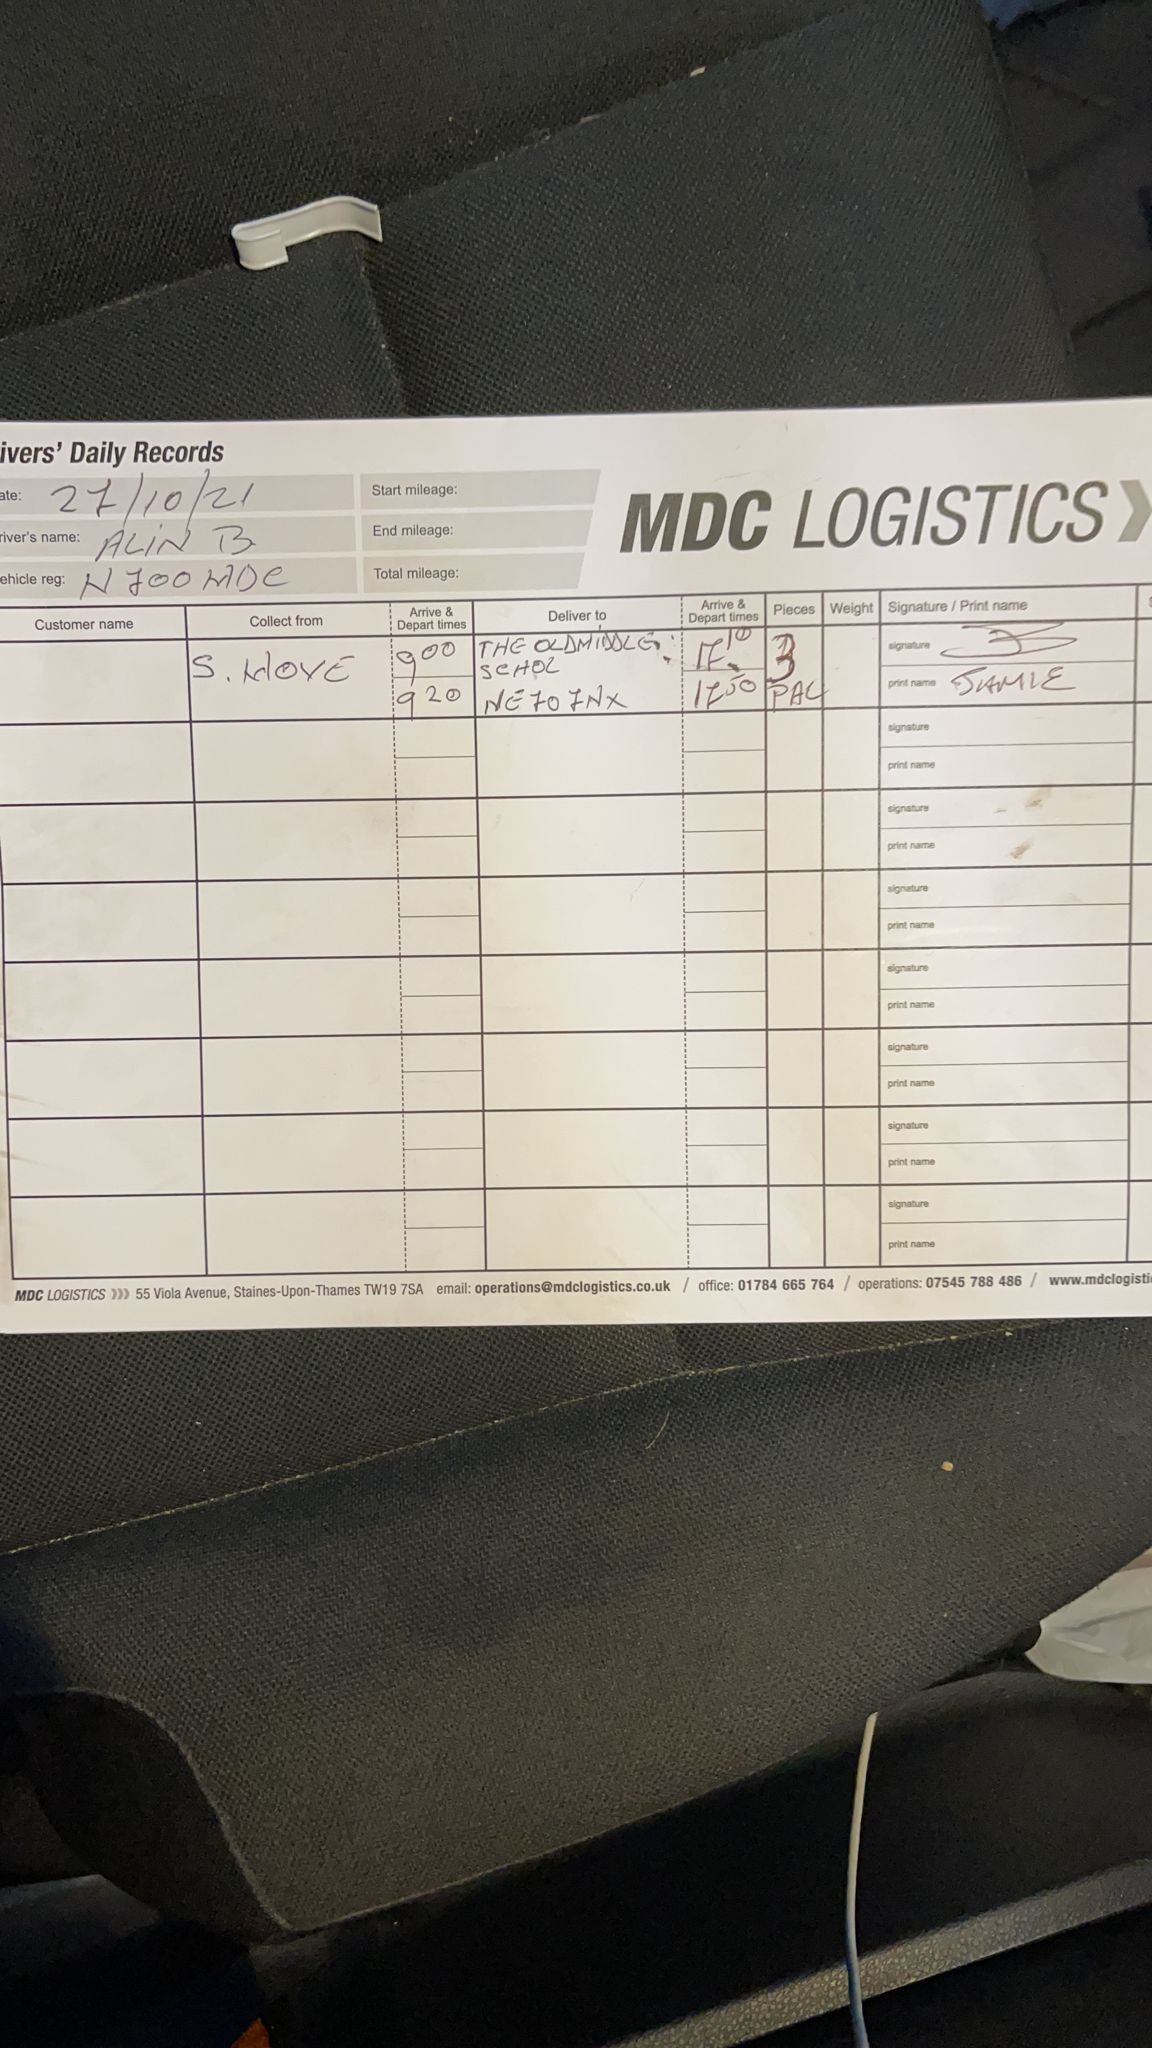 ivers' Daily Records
ate: 27/10/21
Start mileage:
MDC LOGISTICS
river's name: ALIN B
End mileage:
ehicle reg: N700MDC
Total mileage:
Customer name
Collect from
Arrive & Depart times
Deliver to
Arrive & Depart times
Pieces
Weight
Signature / Print name
S. MOVE
9 00
THE OLD MIDDLE
SCHOL
17 10
3
signature
9 20
NE70 7NX
17 50
PAL
print name JAMIE
signature
print name
signature
print name
signature
print name
signature
print name
signature
print name
signature
print name
signature
print name
MDC LOGISTICS 》》》 55 Viola Avenue, Staines-Upon-Thames TW19 7SA email: operations@mdclogistics.co.uk / office: 01784 665 764 / operations: 07545 788 486 / www.mdclogisti